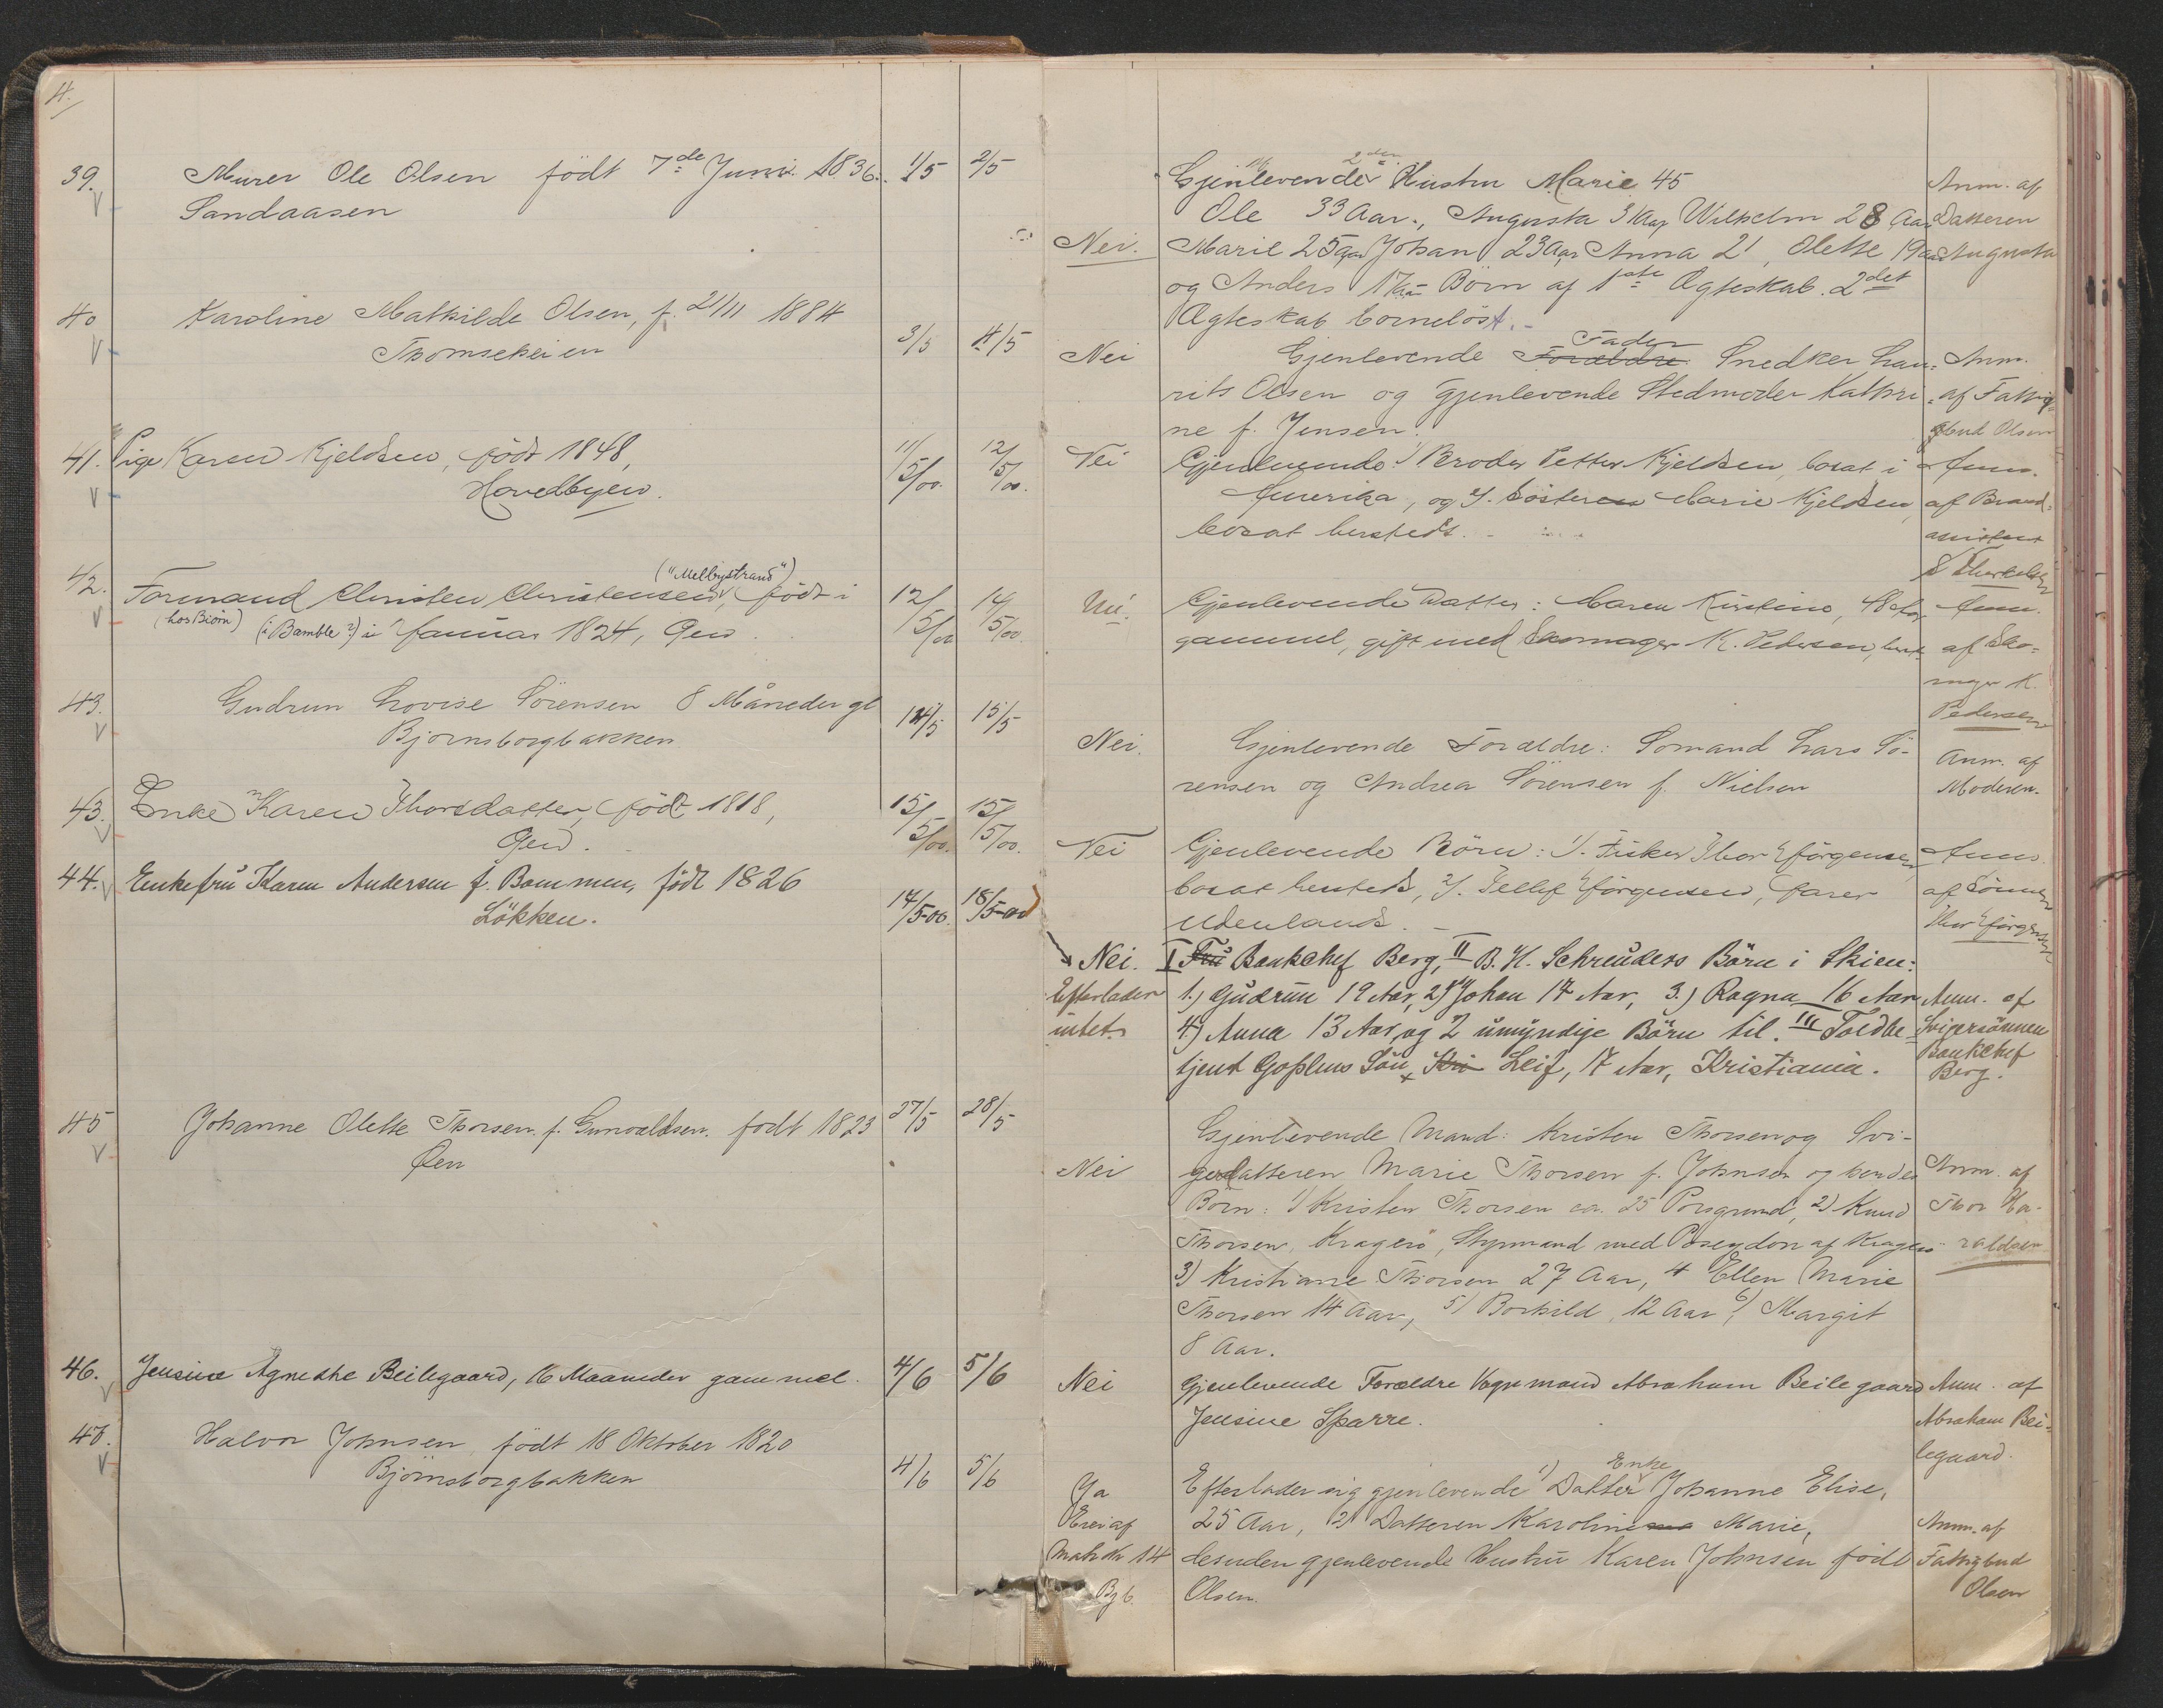 4.
39. Murer Ole Olsen født 7de Juni 1836. 1/5 2/5
Sandaasen
40 Karoline Mathilde Olsen, f. 21/11 1884
Thomseheien 3/5 4/5
41. Pige Karen Kjeldsen, født 1848, 11/5/00. 12/5/00.
Hovedbyen.
("Melbystrand")
42. Formand Christen Christensen, født i 12/5/00 14/5/00.
(hos Biørn) (i Bamble?) i Januar 1824, Øen
43. Gudrun Lovise Sörensen 8 Måneder gl 14/5 15/5
Björnsborgbakken
43. Enke Karen Thorsdatter, født 1818, 15/5/00. 15/5/00.
Øen.
44. Enkefru Karen Andersen f. Bommen, född 1826
Lökken. 17/5-00. 18/5-00
45 Johanne Olette Thorsen f. Gunvaldsen. født 1823 27/5 28/5
Øen
46. Jensine Agnethe Beilegaard, 16 Maaneder gammel. 4/6 5/6
47. Halvor Johnsen, født 18 Oktober 1820
Björnsborgbakken 4/6 5/6
2den
Gjenlevende Hustru Marie 45 Anm. af
Ole 33 Aar., Augusta 31 Aar Wilhelm 28 Aar Datteren
Nei. Marie 25 Aar Johan 23 Aar Anna 21, Olette 19 Aar Augusta
og Anders 17 Aar Börn af 1ste Ægteskab. 2det
Ægteskab barnelöst.
Fader
Nei Gjenlevende Forældre Snedker Lau- Anm.
rits Olsen og gjenlevende Stedmoder Kathri- af Fattig-
ne f. Jensen. bud Olsen
Nei Gjenlevende: 1) Broder Petter Kjeldsen, bosat i Anm.
Amerika, og 2. Søsteren Marie Kjeldsen, af Brand-
bosat hersteds. assistent
Nei. Gjenlevende Datter: Maren Kirstine, 48 Aar Anm.
gammel, gift med Skomager K. Pedersen, herst. af Sko-
mager K.
Pedersen
Nei. Gjenlevende Forældre: Somand Lars Sö-
rensen og Andrea Sörensen f. Nielsen Anm. af
Moderen.
Nei Gjenlevende Børn: 1). Fisker Thor Jörgensen Anm.
bosat hersteds, 2). Tellef Jörgensen, farer af Sønnen
udenlands. Thor Jörgensen
Nei. I Fru Bankchef Berg, II B. H. Schreuders Börn i Skien:
Efterlader 1.) Gudrun 19 Aar, 2) Johan 17 Aar, 3.) Ragna 16 Aar Anm. af
intet. 4.) Anna 13 Aar, og 2 umyndige Börn til. III Toldbe- Svigersönnen
tjent Goplens Sön, Kri Leif, 17 Aar, Kristiania. Bankchef
Berg.
Gjenlevende Mand: Kristen Thorsen og Svi-
Nei gerdatteren Marie Thorsen f. Johnsen og hendes Anm. af
Börn: 1) Kristen Thorsen ca. 25 Porsgrund, 2) Knud Thor Ha-
Thorsen, Kragerö, Styrmand med Poseydon af Kragerö raldsen
3) Kristiane Thorsen 27 Aar, 4 Ellen Marie
Thorsen 14 Aar, 5) Borhild, 12 Aar 6) Margit
8 Aar.
Nei Gjenlevende Forældre Vognmand Abraham Beilegaard Anm. af
Jensine Sparre. Abraham Bei-
legaard.
Enke
Ja Efterlader sig gjenlevende 1) Datter Johanne Elise,
Eier af 25 Aar, 2) Datteren Karoline Marie, Anm. af
Matr Nr 14 desuden gjenlevende Hustru Karen Johnsen född Fattigbud
Bjb. Olsen. Olsen